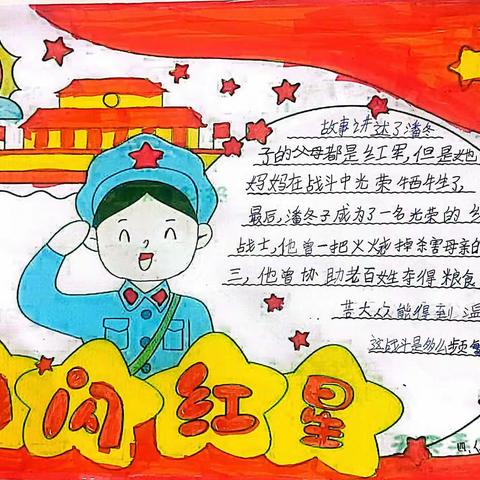 故事讲达了潘冬
子的父母都是红军,但是她
妈妈在战斗中光荣牺牲了
最后,潘冬子成为了一名光荣的
战士,他曾一把火烧掉杀害母亲的
三,他曾协助老百姓夺得粮食
苦大众能得到温
这战斗是多么频
闪红星
四、